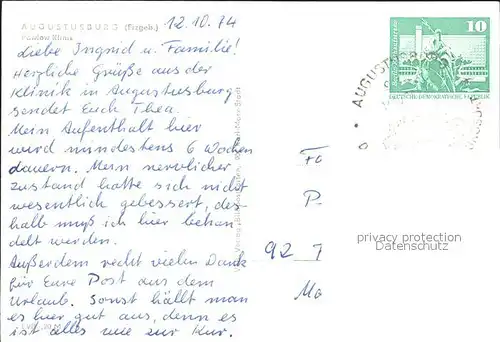 12.10.74
AUGUSTUSBURG (Erzgeb.)
Pawlow Klinik
Liebe Ingrid u. Familie!
Herzliche Grüße aus der
Klinik in Augustusburg
sendet Euch Thea.
Mein Aufenthalt hier
wird mindestens 6 Wochen
dauern. Mein nervlicher
zustand hatte sich nicht
wesentlich gebessert, des-
halb muß ich hier behan-
delt werden.
Außerdem recht vielen Dank
für Eure Post aus dem
Urlaub. Sonst hällt man
es hier gut aus, denn es
ist alles wie zur Kur.
10
DEUTSCHE DEMOKRATISCHE REPUBLIK
P.
92
privacy protection
Datenschutz